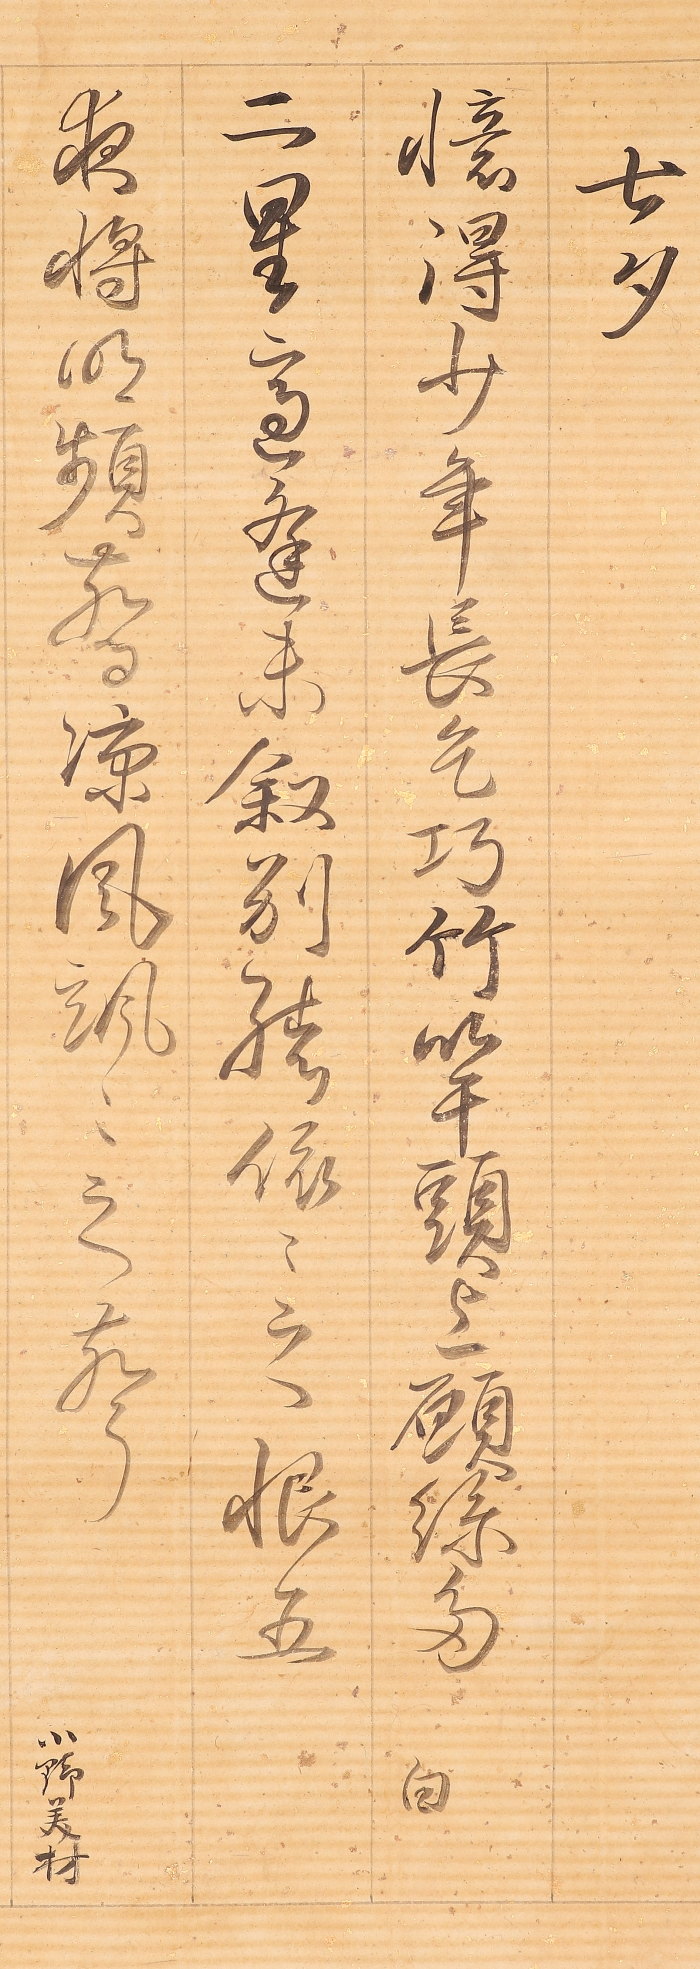 七夕
憶得少年長乞巧竹竿頭上願絲多 白
二星適逢未叙別緒依〻之恨五
夜将明頻驚涼風颯〻之聲
小野美材